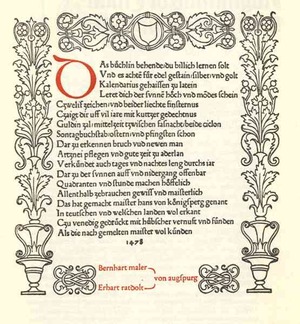 Das büchlin behende du billich lernen solt
Vnd es achten für edel gestain silber vnd golt
Kalendarius gehaissen zu latein
Leret dich der sunnē höch vnd mōdes schein
Zwelif zeichen vnd beider liechte finsternus
Zaigt dir uff vil iare mit kurtzer gedechtnus
Guldin zal mittelzeit zwischen fasnacht beide ciclon
Sontagbuchstab ostern vnd pfingsten schon
Dar zu erkennen bruch vnd newen man
Artznei pflegen vnd gute zeit zu aderlan
Verkündet auch tages vnd nachtes leng durchs iar
Dar zu der sunnen auff vnd nidergang offenbar
Quadranten vnd stunde machen höfflich
Allenthalb gebrauchen gewiß vnd maisterlich
Das hat gemacht maister hans von königsperg genant
In teutschen vnd welschen landen wol erkant
Zu venedig gedruckt mit hübscher vernuft vnd fünden
Als die nach gemelten maister wol künden
1478
Bernhart maler
von augspurg
Erhart ratdolt